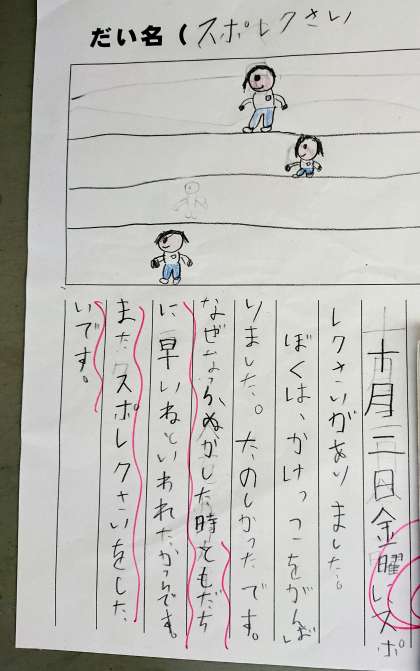 だい名(スポレクさい
十月三日金曜に、スポ
レクさいがありました。
ぼくは、かけっこをがんば
りました。たのしかったです。
なぜなら、ぬかした時ともだち
に早いねといわれたからです。
またスポレクさいをした
いです。